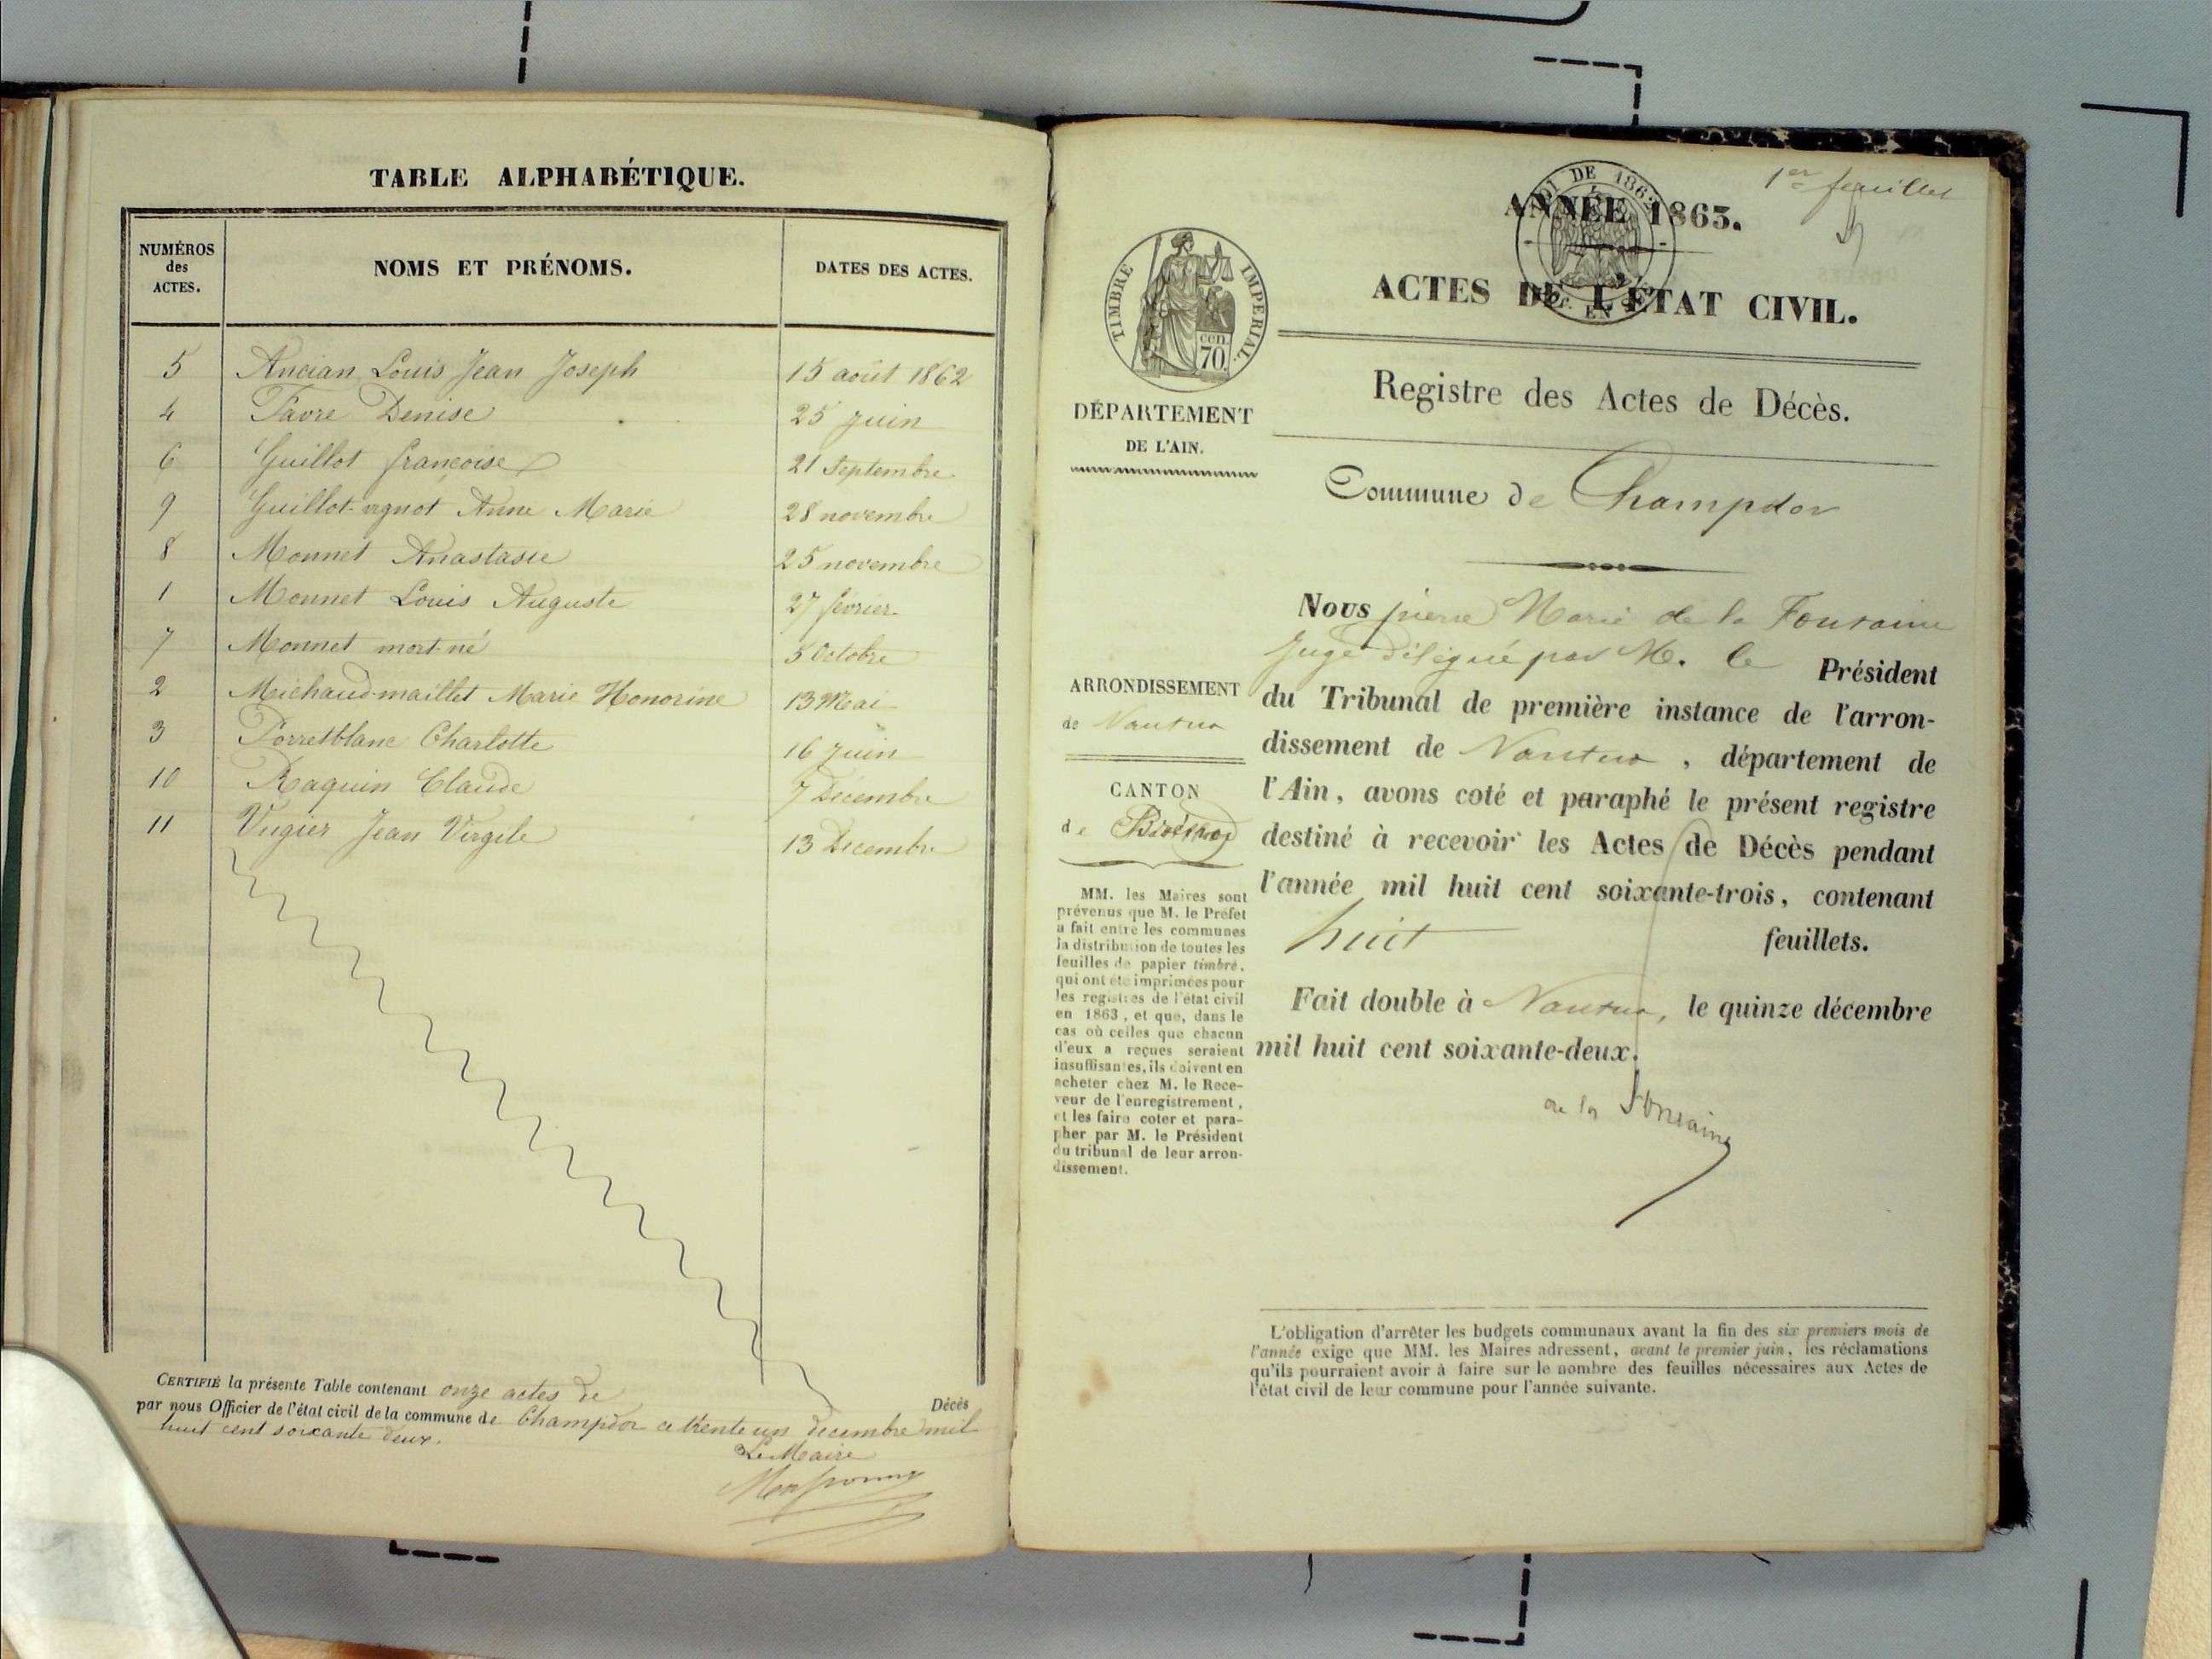 TABLE ALPHABÉTIQUE.
NUMÉROS des ACTES.
NOMS ET PRÉNOMS.
DATES DES ACTES.
5 Ancian Louis Jean Joseph 15 août 1862
4 Favre Denise 25 juin
6 Guillot françoise 21 Septembre
9 Guillot-vignot Anne Marie 28 novembre
8 Monnet Anastasie 25 novembre
1 Monnet Louis Auguste 27 février
7 Monnet mort-né 5 Octobre
2 Michaud-maillet Marie Honorine 13 Mai
3 Porretblanc Charlotte 16 juin
10 Raquin Claude 7 Décembre
11 Vugier Jean Virgile 13 Décembre
CERTIFIÉ la présente Table contenant onze actes de Décès
par nous Officier de l'état civil de la commune de Champdor ce trente un décembre mil
huit cent soixante deux.
Le Maire
1er feuillet
ANNÉE 1863.
ACTES DE L'ÉTAT CIVIL.
TIMBRE IMPERIAL.
cen. 70.
DÉPARTEMENT
DE L'AIN.
Registre des Actes de Décès.
Commune de Champdor
Nous pierre Marie de la Fontaine
Juge délégué par M. le Président
du Tribunal de première instance de l'arron-
dissement de Nantua, département de
l'Ain, avons coté et paraphé le présent registre
destiné à recevoir les Actes de Décès pendant
l'année mil huit cent soixante-trois, contenant
huit feuillets.
Fait double à Nantua, le quinze décembre
mil huit cent soixante-deux.
de la Fontaine
ARRONDISSEMENT
de Nantua
CANTON
de Brénod
MM. les Maires sont
prévenus que M. le Préfet
a fait entre les communes
la distribution de toutes les
feuilles de papier timbré,
qui ont été imprimées pour
les registres de l'état civil
en 1863, et que, dans le
cas où celles que chacun
d'eux a reçues seraient
insuffisantes, ils doivent en
acheter chez M. le Rece-
veur de l'enregistrement,
et les faire coter et para-
pher par M. le Président
du tribunal de leur arron-
dissement.
L'obligation d'arrêter les budgets communaux avant la fin des six premiers mois de
l'année exige que MM. les Maires adressent, avant le premier juin, les réclamations
qu'ils pourraient avoir à faire sur le nombre des feuilles nécessaires aux Actes de
l'état civil de leur commune pour l'année suivante.